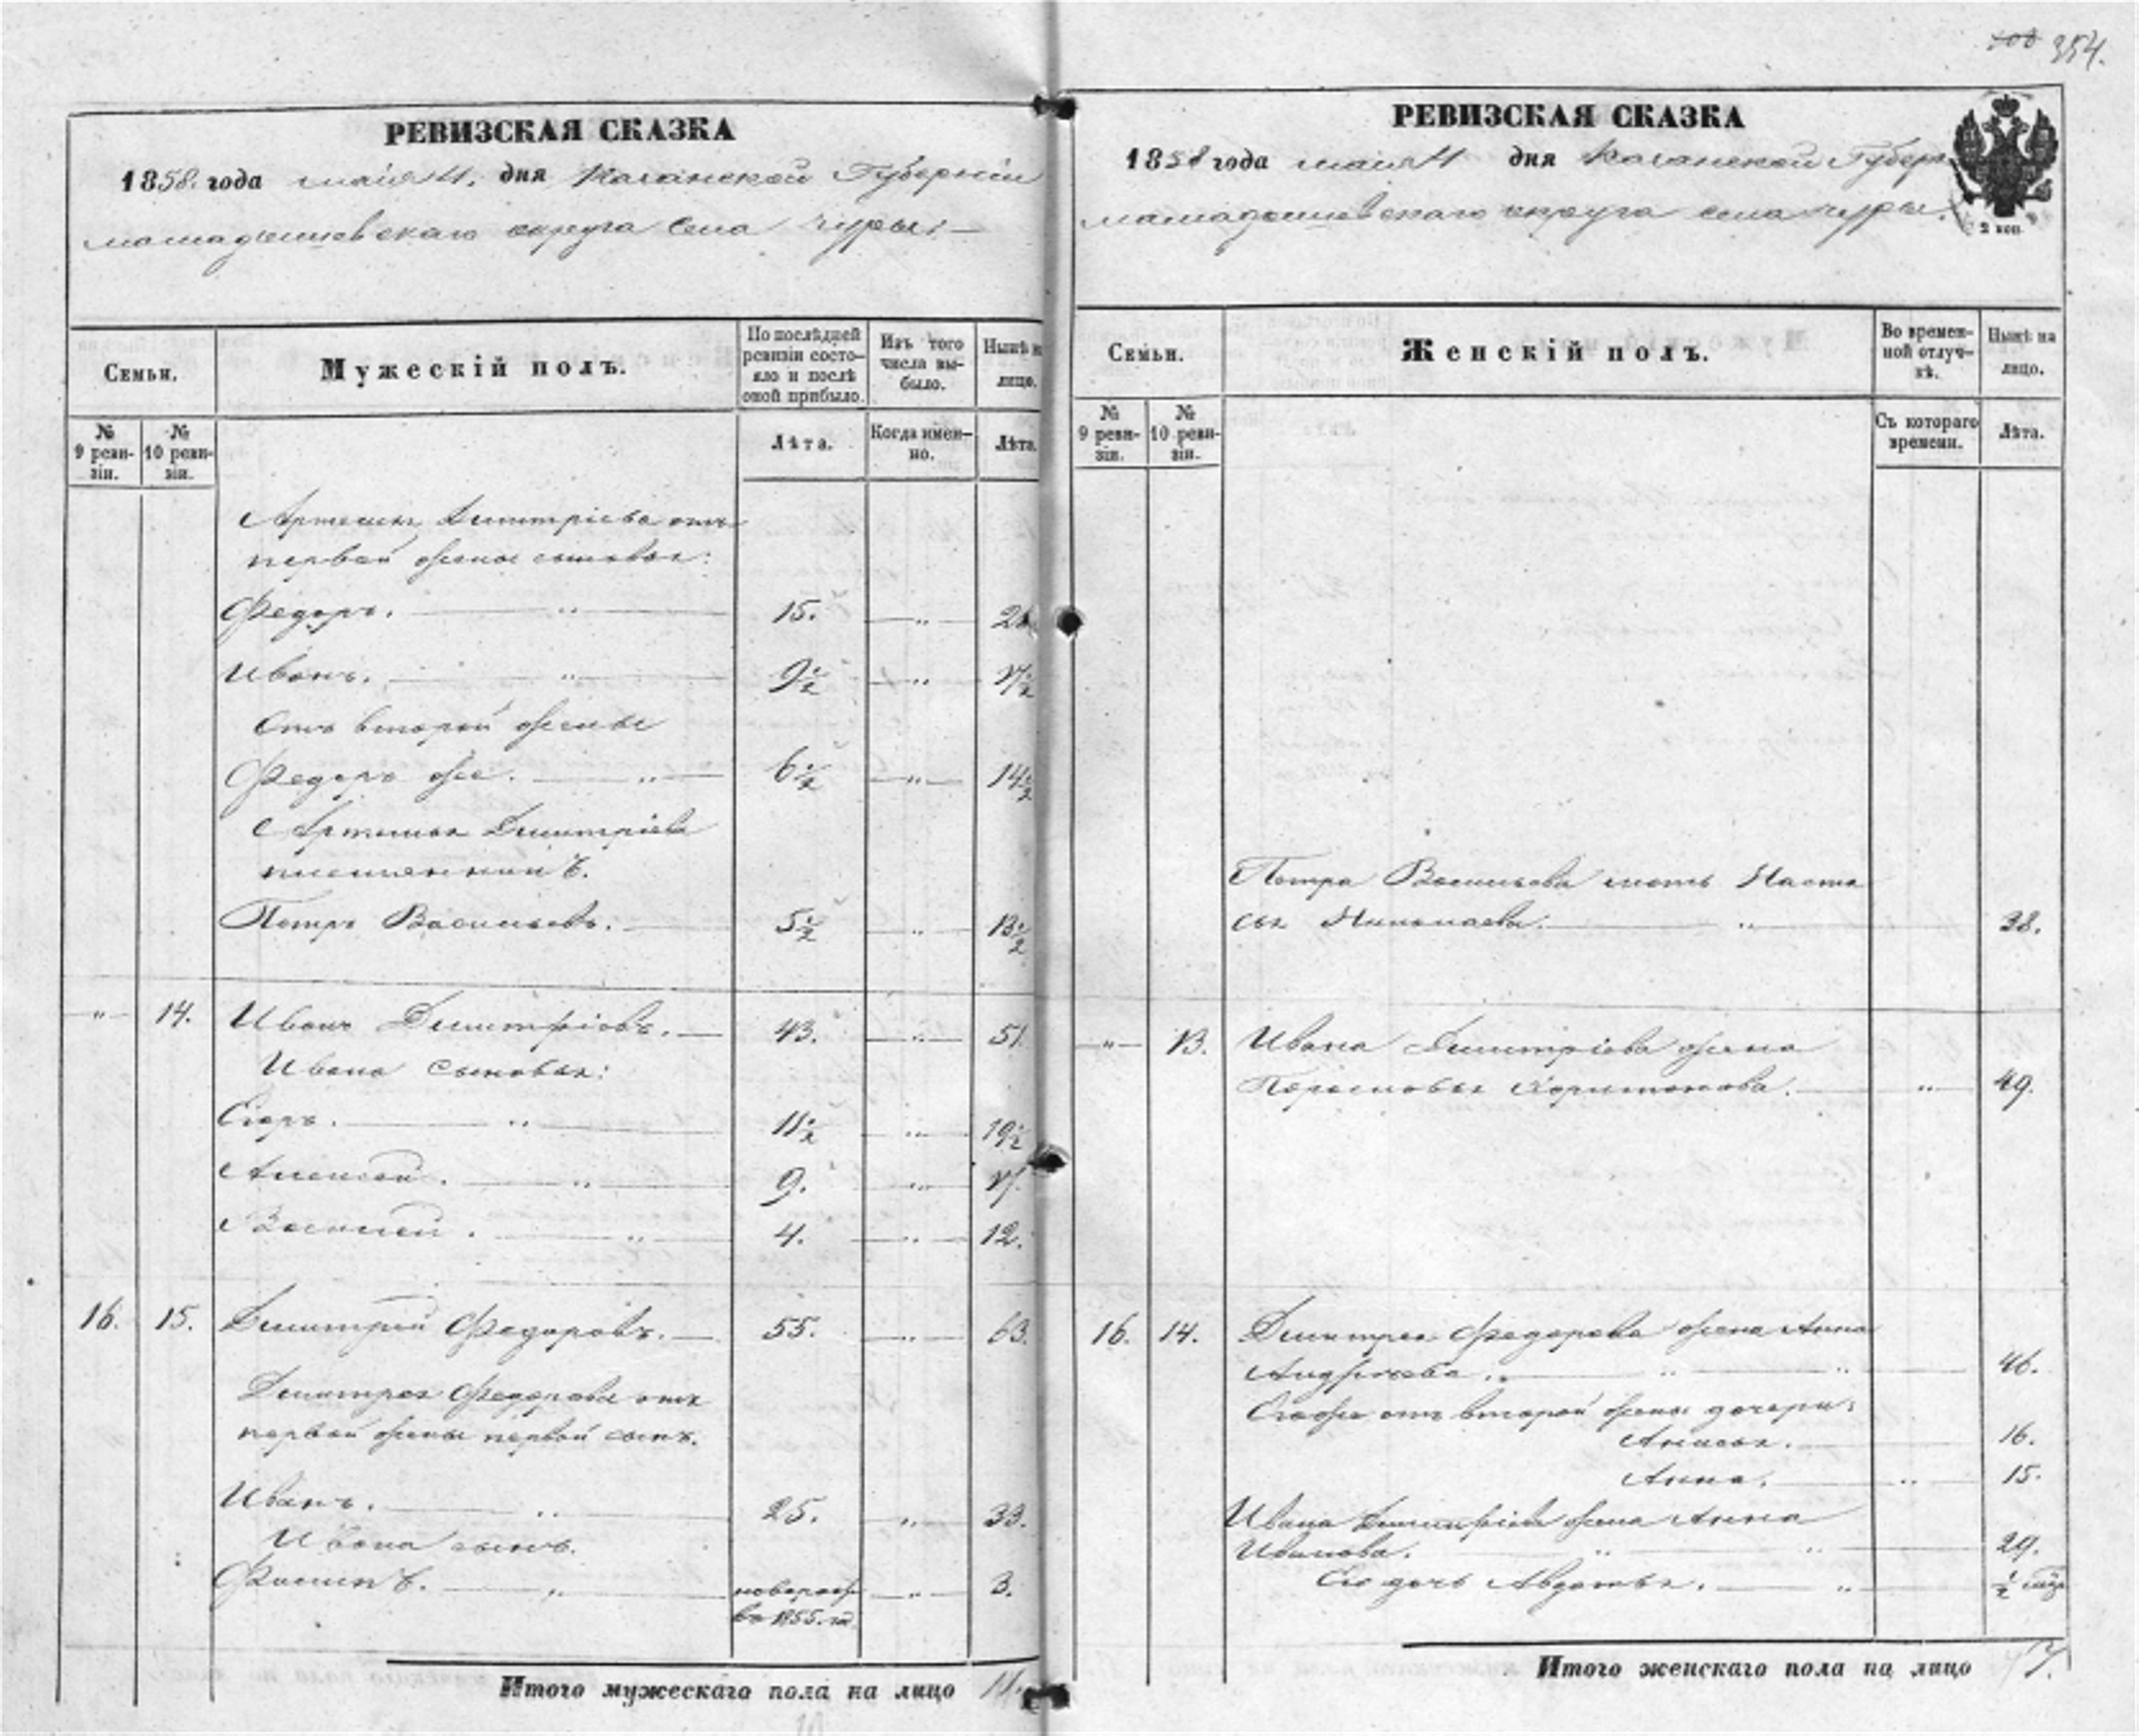 354.
РЕВИЗСКАЯ СКАЗКА
1858. года маія 4. дня Казанской Губерніи
мамадышевскаго округа села Чуры:
Семьи.
Мужескій полъ.
По послѣдней ревизіи состояло и послѣ оной прибыло.
Изъ того числа выбыло.
Нынѣ на лицо.
№ 9 ревизіи.
№ 10 ревизіи.
Лѣта.
Когда именно.
Лѣта.
Артемья Димитріева отъ
первой жены сыновья:
Федоръ. " 15. "
Иванъ. " 9 1/2 " 17 1/2
Отъ второй жены
Федоръ же. " 6 1/2 " 14 1/2
Артемья Димитріева
племянникъ.
Петръ Васильевъ. 5 1/2 " 13 1/2
" 14. Иванъ Димитріевъ. 43. " 51
Ивана сыновья:
" 11 1/2 " 19 1/2
Алексей. " 9. " 17.
Василей. " 4. " 12.
16. 15. Димитрей Федоровъ. 55. " 63.
Димитрея Федорова отъ
первой жены первой сынъ.
Иванъ. " 25. " 33.
Ивана сынъ.
Филипъ. " новорож " 3.
въ 1855. го
Итого мужескаго пола на лицо 11.
РЕВИЗСКАЯ СКАЗКА
1858 года маія 4 дня Казанской Губер
мамадышевскаго округа села Чуры.
2 коп.
Семьи.
Женскій полъ.
Во временной отлучкѣ.
Нынѣ на лицо.
№ 9 ревизіи.
№ 10 ревизіи.
Съ котораго времени.
Лѣта.
Петра Васильева мать Наста
сья Николаева. " 38.
" 13. Ивана Димитріева жена
Парасковья Харитонова. " 49.
16. 14. Димитрея Федорова жена Анна
Андреева. " " 46.
отъ второй жены дочери:
Анисья. 16.
Анна. " 15.
Ивана Димитріева жена Анна
Иванова. " " 29.
Его дочь Авдотья. " 1/2
Итого женскаго пола на лицо 7.